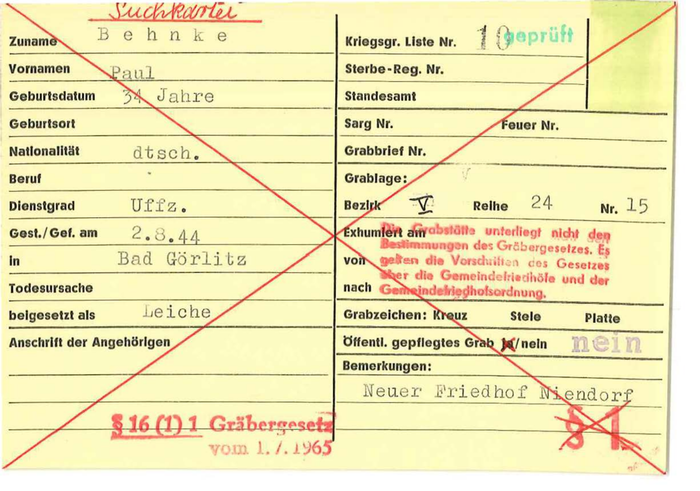 Suchkartei
Zuname Behnke
Vornamen Paul
Geburtsdatum 34 Jahre
Geburtsort
Nationalität dtsch.
Beruf
Dienstgrad Uffz.
Gest./Gef. am 2.8.44
in Bad Görlitz
Todesursache
beigesetzt als Leiche
Anschrift der Angehörigen
§ 16 (1) 1 Gräbergesetz
vom 1.7.1965
Kriegsgr. Liste Nr. 10 geprüft
Sterbe-Reg. Nr.
Standesamt
Sarg Nr. Feuer Nr.
Grabbrief Nr.
Grablage:
Bezirk V Reihe 24 Nr. 15
Exhumiert am
von
nach
Die Grabstätte unterliegt nicht den
Bestimmungen des Gräbergesetzes. Es
gelten die Vorschriften des Gesetzes
über die Gemeindefriedhöfe und der
Gemeindefriedhofsordnung.
Grabzeichen: Kreuz Stele Platte
Öffentl. gepflegtes Grab ja/nein nein
Bemerkungen:
Neuer Friedhof Niendorf
§ 1